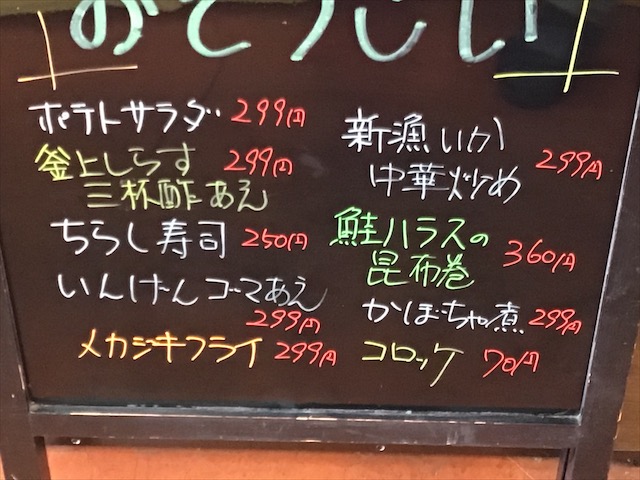 おそうざい
ポテトサラダ 299円
釜上しらす 299円
三杯酢あえ
ちらし寿司 250円
いんげんゴマあえ
299円
メカジキフライ 299円
新漁いか
中華炒め 299円
鮭ハラスの
昆布巻 360円
かぼちゃ煮 299円
コロッケ 70円